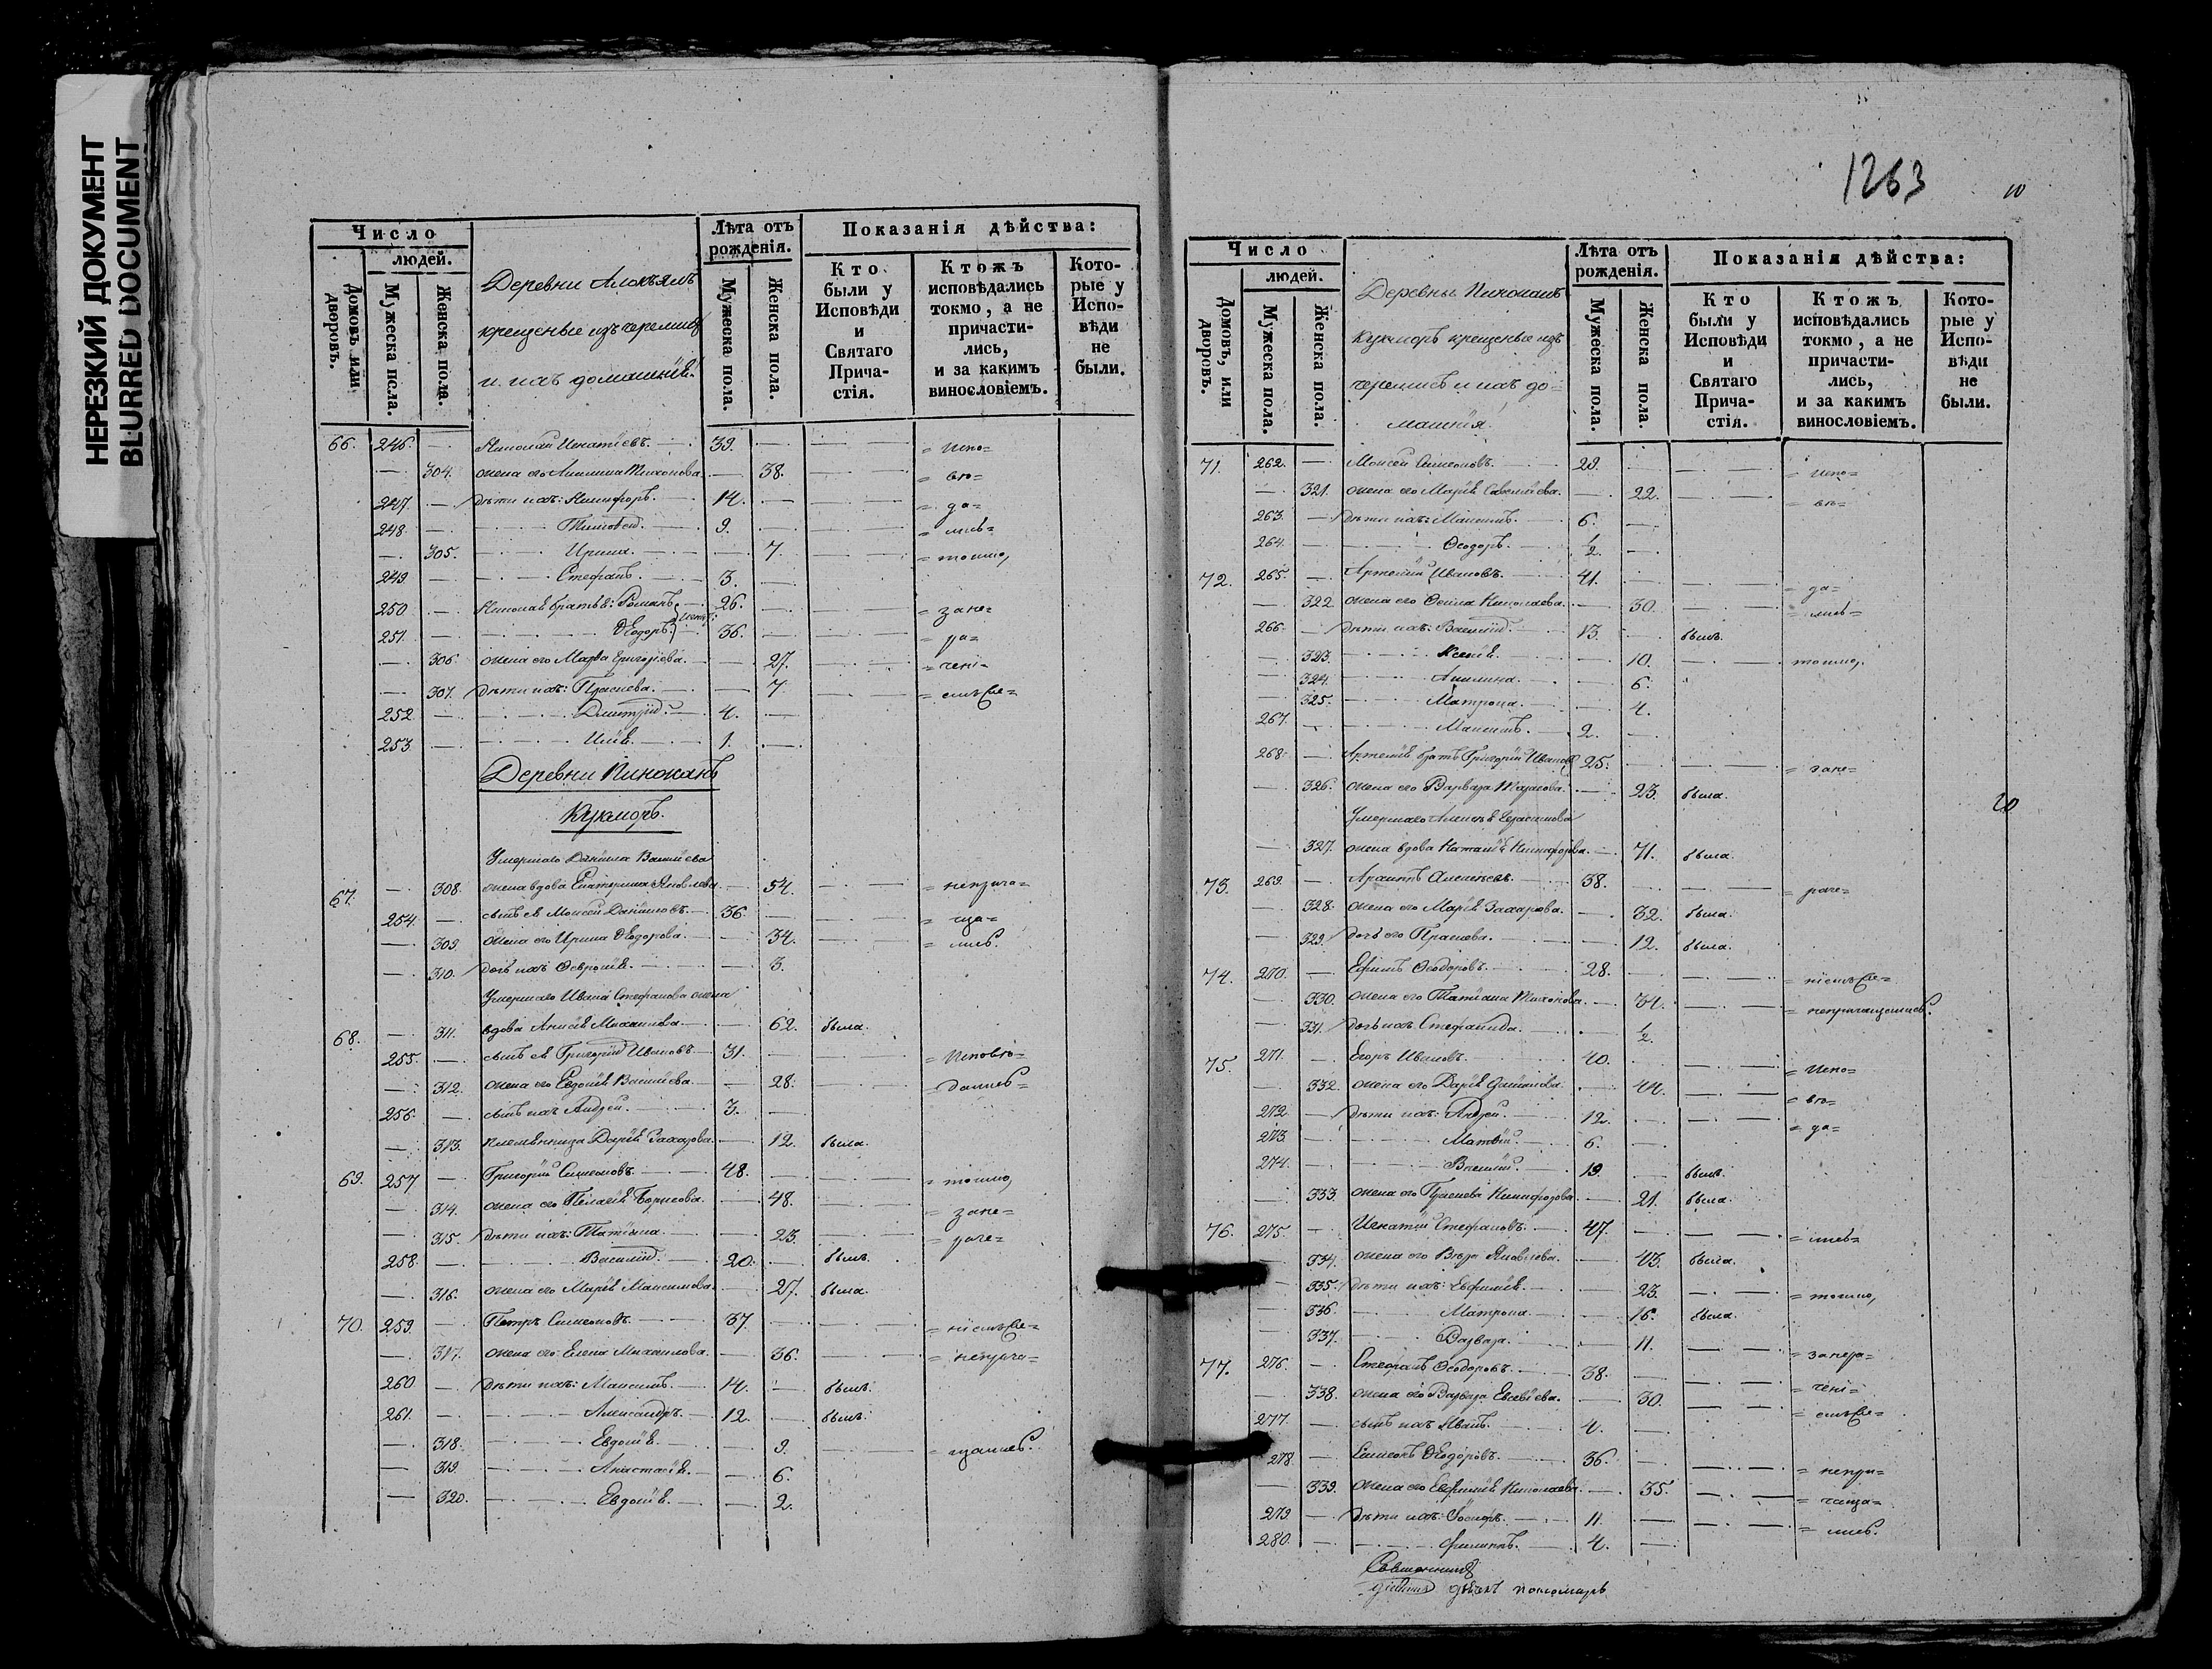 НЕРЕЗКИЙ ДОКУМЕНТ
BLURRED DOCUMENT
Число
людей.
Домовъ или дворовъ.
Мужеска пола.
Женска пола.
Деревни
крещеные изъ черемисъ
и ихъ домашнія.
Лѣта отъ рожденія.
Мужеска пола.
Женска пола.
Показанія дѣйства:
Кто были у Исповѣди и Святаго Причастія.
Ктожъ исповѣдались токмо, а не причастились, и за какимъ винословіемъ.
Которые у Исповѣди не были.
66. 246. — Николай Игнатіевъ. 39. — = испо=
— 304. жена его Акилина Тихонова. — 38. = вѣ=
247. — дѣти ихъ: Никифоръ. 14. — = да=
248. — Тимофей. 9. — = лись=
— 305. Ирина. — 7. = токмо,
249. — Стефанъ. 3. —
250. — Николая братья: Романъ, 26. — = зане=
251. — Ѳеодоръ. 36. — = ра=
— 306. жена его Марѳа Григоріева. — 27. = чені=
— 307. дѣти ихъ: Праскева. — 7. = емъ Све=
252. — Дмитрій. 4. —
253. — Илія. 1. —
Деревни
Кукморъ.
Умершаго Даніила Василіева
67. — 308. жена вдова Екатерина Яковлева. — 54. = неприча=
254. — сынъ ея Моисей Даніиловъ. 36. — = ща=
— 309. жена его Ирина Ѳеодорова. — 34. = лись.
— 310. дочь ихъ Ѳевронія. — 3.
Умершаго Ивана Стефанова жена
68. — 311. вдова Анисія Михаилова. — 62. была.
255. — сынъ ея Григорій Ивановъ. 31. — = Исповѣ=
— 312. жена его Евдокія Василіева. — 28. = дались=
256. — сынъ ихъ Андрей. 3. —
— 313. племянница Дарія Захарова. — 12. была.
69. 257. — Григорій Симеоновъ. 48. — = токмо,
— 314. жена его Пелагія Борисова. — 48. = зане=
— 315. дѣти ихъ: Татіана. — 23. = раче=
258. — Василій. 20. — былъ.
— 316. жена его Марія Максимова. — 27. была.
70. 259. — Петръ Симеоновъ. 37. — = ніемъ Све=
— 317. жена его Елена Михаилова. — 36. = неприча=
260. — дѣти ихъ: Максимъ. 14. — былъ.
261. — Александръ. 12. — былъ.
— 318. Евдокія. — 9. = щались.
— 319. Анастасія. — 6.
— 320. Евдокія. — 2.
1263
10
Число
людей.
Домовъ, или дворовъ.
Мужеска пола.
Женска пола.
Деревни
Кукморъ крещеные изъ
черемисъ и ихъ до=
машнія.
Лѣта отъ рожденія.
Мужеска пола.
Женска пола.
Показанія дѣйства:
Кто были у Исповѣди и Святаго Причастія.
Ктожъ исповѣдались токмо, а не причастились, и за какимъ винословіемъ.
Которые у Исповѣди не были.
71. 262. — Моисей Симеоновъ. 29. — = испо=
— 321. жена его Марія Савеліева. — 22. = вѣ=
263. — дѣти ихъ: Максимъ. 6. —
264. — Ѳеодоръ. ½. —
72. 265. — Артемій Ивановъ. 41. — = да=
— 322. жена его Николаева. — 30. = лись=
266. — дѣти ихъ: Василій. 13. — былъ.
— 323. Ксенія. — 10. токмо,
— 324. Акилина. — 6.
— 325. Матрона. — 4.
267. — Максимъ. 2. —
268. — Артемія братъ Григорій Ивановъ 25. — = зане=
— 326. жена его Варвара Тарасова. — 23. была.
20
Умершаго Алексѣя Герасимова
— 327. жена вдова Наталія Никифорова. — 71. была.
73. 269. — Алексѣевъ. 38. — = раче=
— 328. жена его Марія Захарова. — 32. была.
— 329. дочь его Праскева. — 12. была.
74. 270. — Ефимъ Ѳеодоровъ. 28. — = ніемъ Све=
— 330. жена его Татіана Тихонова. — 34. = непричащались.
— 331. дочь ихъ Стефанида. — ½.
75. 271. — Егоръ Ивановъ. 40. — = Испо=
— 332. жена его Дарія — 44. = вѣ=
272. — дѣти ихъ: Андрей. 12. — = да=
273. — Матѳей. 6. —
274. — Василій. 19. — былъ.
— 333. жена его Праскева Никифорова. — 21. была.
76. 275. — Игнатій Стефановъ. 47. — = лись=
— 334. жена его Вѣра Яковлева. — 43. была.
— 335. дѣти ихъ: Евфимія. — 23. = токмо,
— 336. Матрона. — 16. была.
— 337. Варвара. — 11.
77. 276. — Стефанъ Ѳеодоровъ. 38. — = занера=
— 338. жена его Варвара Евсевіева. — 30. = чені=
277. — сынъ ихъ Иванъ. 4. — = емъ Све=
278. — Симеонъ Ѳеодоровъ. 36. — = непри=
— 339. жена его Евфимія Николаева. — 35. = чаща=
279. — дѣти ихъ: 11. — = лись.
280. — Филиппъ. 4. —
Священникъ
пономарь